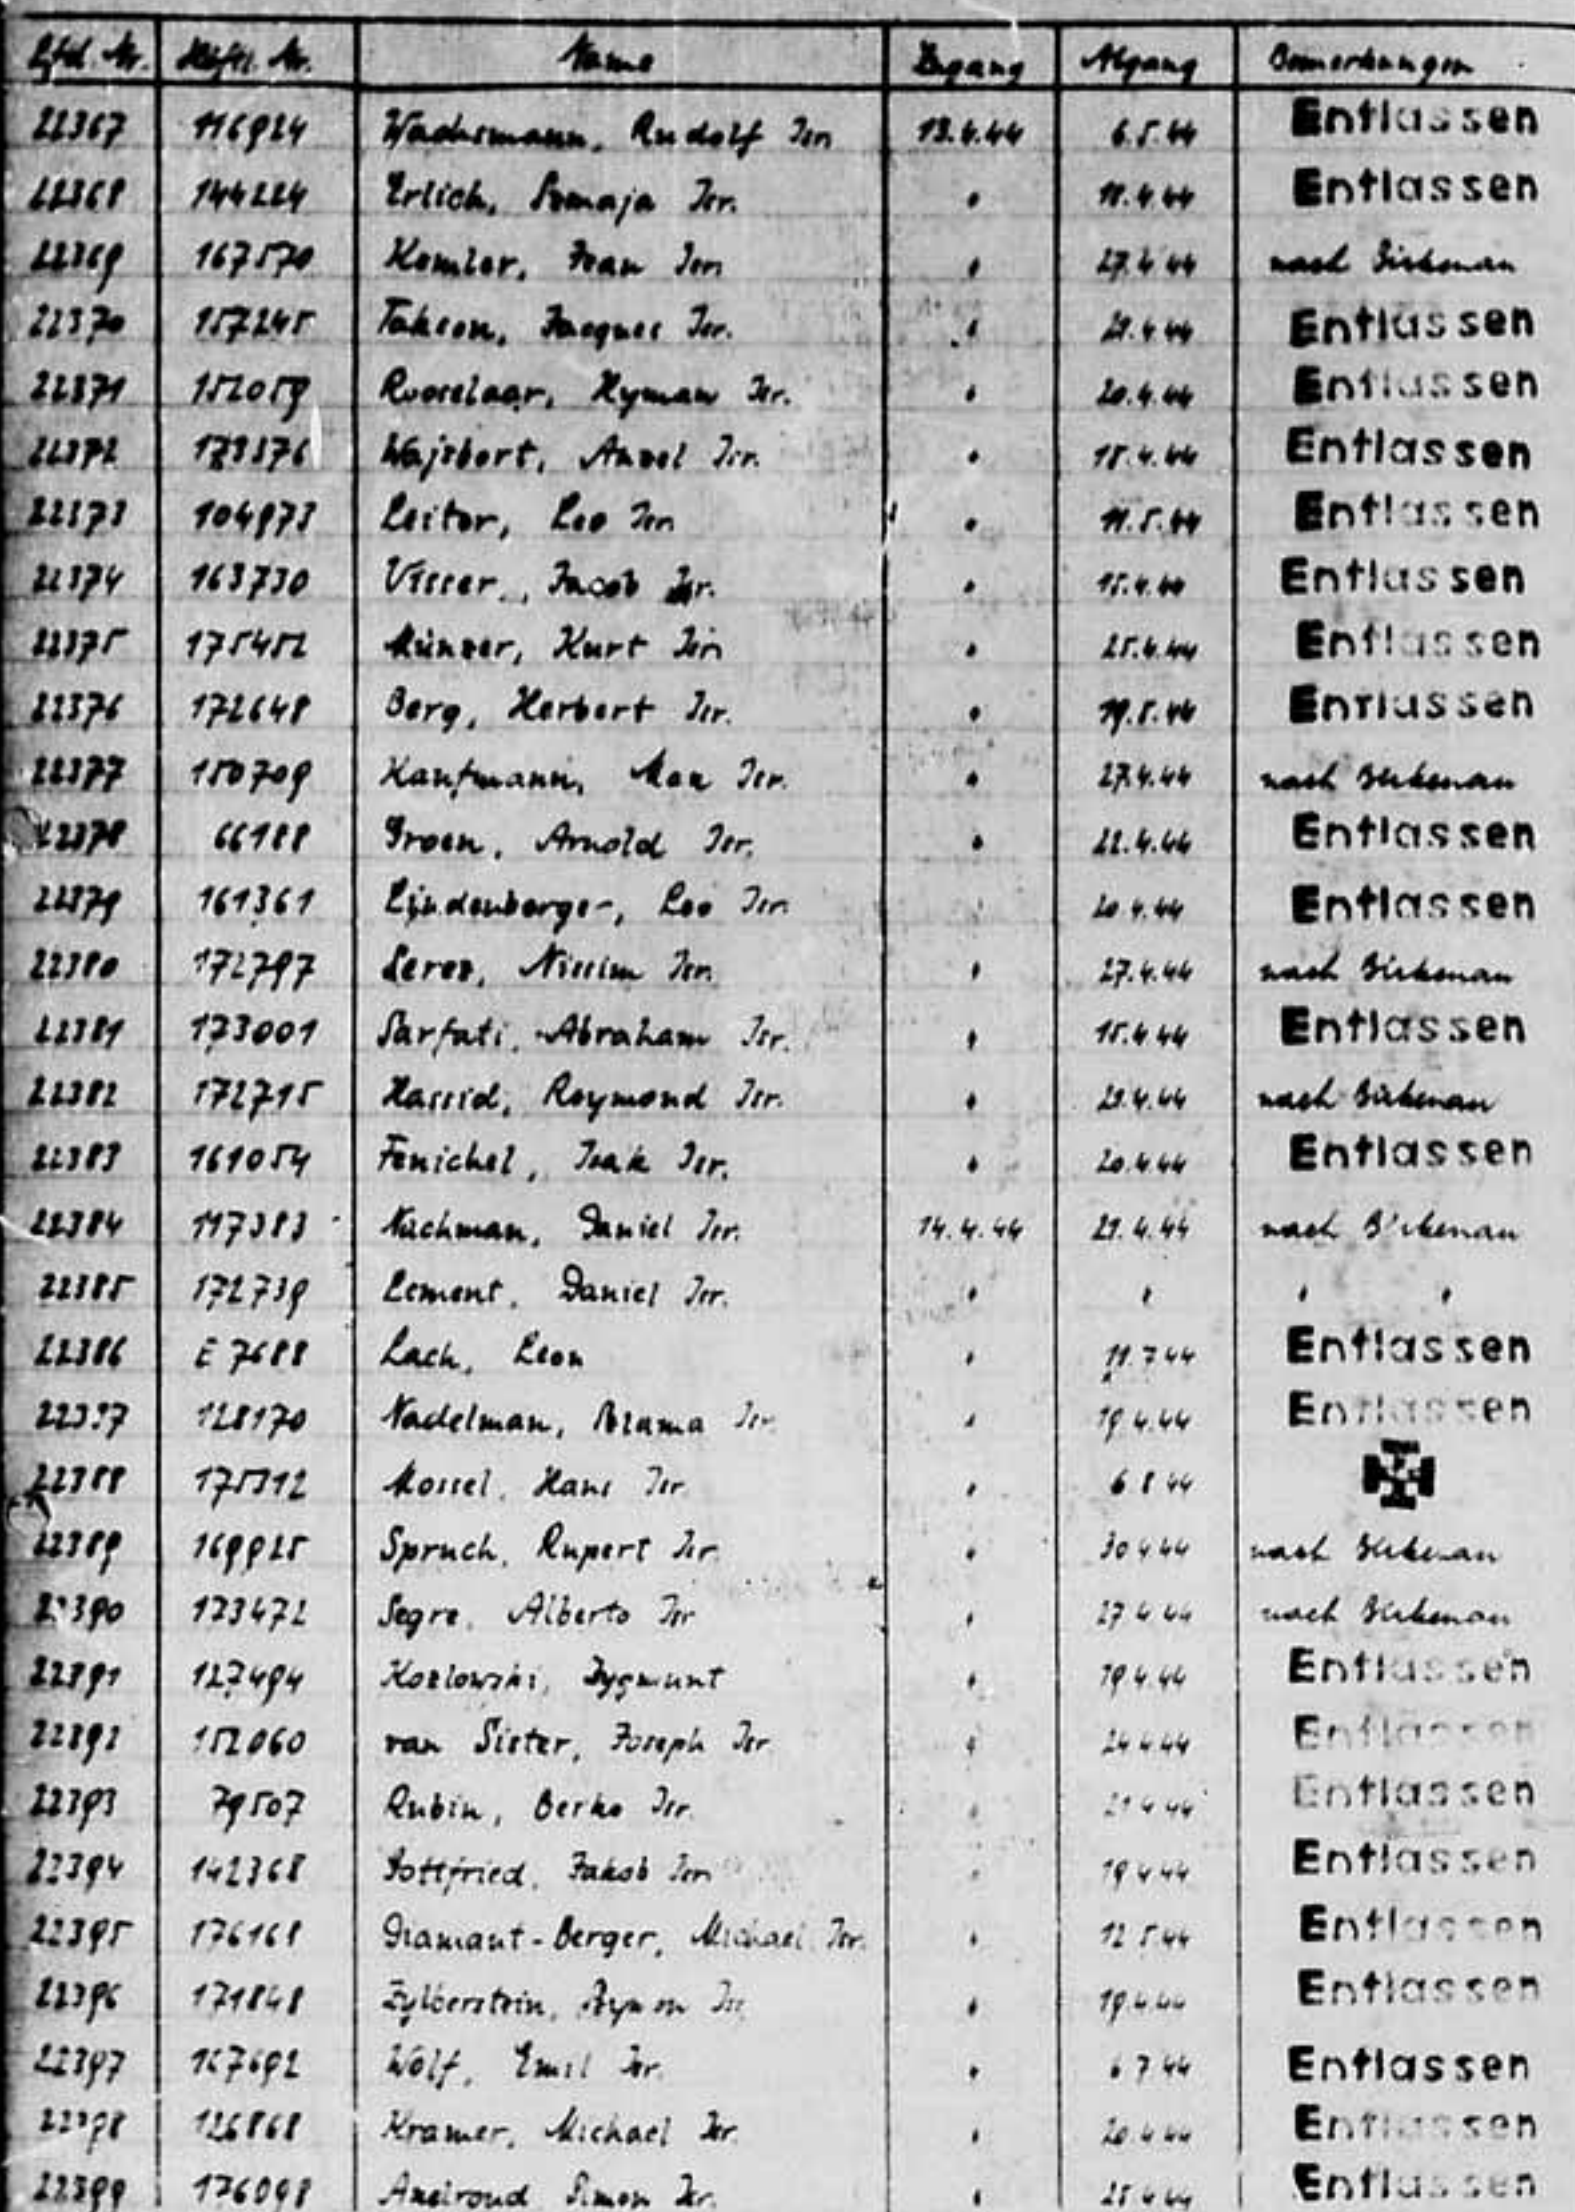 Lfd. Nr. Häftl. Nr. Name Zugang Abgang Bemerkungen
22367 116924 Wachsmann, Rudolf Isr. 13.4.44 6.5.44 Entlassen
22368 144224 Erlich, Isr. " 18.4.44 Entlassen
22369 167570 Isr. " 27.4.44 nach Birkenau
22370 157245 Jacques Isr. " 21.4.44 Entlassen
22371 152059 Rooselaar, Hyman Isr. " 20.4.44 Entlassen
22372 Wajsbort, Isr. " 18.4.44 Entlassen
22373 104973 Leitor, Leo Isr. " 11.5.44 Entlassen
22374 163730 Visser, Jacob Isr. " 15.4.44 Entlassen
22375 175452 Münzer, Kurt Isr. " 25.4.44 Entlassen
22376 172648 Berg, Herbert Isr. " 19.5.44 Entlassen
22377 150709 Kaufmann, Max Isr. " 27.4.44 nach Birkenau
22378 66188 Groen, Arnold Isr. " 22.4.44 Entlassen
22379 161361 Lindenberger, Leo Isr. 20.4.44 Entlassen
22380 172797 Nissim Isr. " 27.4.44 nach Birkenau
22381 173001 Sarfati, Abraham Isr. " 15.4.44 Entlassen
22382 172715 Hassid, Raymond Isr. " 21.4.44 nach Birkenau
22383 161054 Fenichel, Isak Isr. " 20.4.44 Entlassen
22384 117383 Nachman, Daniel Isr. 14.4.44 21.4.44 nach Birkenau
22385 172739 Lement, Daniel Isr. " " " "
22386 E 7688 Lach, Leon " 11.7.44 Entlassen
22387 128170 Nadelman, Isr. " 19.4.44 Entlassen
22388 175312 Mossel, Hans Isr. " 6 8 44
22389 169925 Spruch, Rupert Isr. " 30 4 44 nach Birkenau
22390 173472 Segre, Alberto Isr. " 27 4 44 nach Birkenau
22391 127494 Kozlowski, Zygmunt " 19 4 44 Entlassen
22392 152060 van Sister, Joseph Isr. " 24 4 44 Entlassen
22393 79507 Rubin, Berko Isr. " 21 4 44 Entlassen
22394 142368 Gottfried, Jakob Isr. " 19 4 44 Entlassen
22395 176168 Diamant-Berger, Michael Isr. " 12 5 44 Entlassen
22396 171848 Zylberstein, Szymon Isr. " 19 4 44 Entlassen
22397 167692 Wolf, Emil Isr. " 6 7 44 Entlassen
22398 126868 Kramer, Michael Isr. " 20 4 44 Entlassen
22399 176098 Axelroud Simon Isr. " 25 4 44 Entlassen